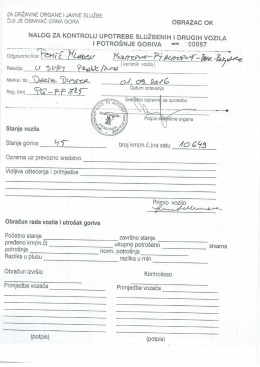 ZA DRŽAVNE ORGANE I JAVNE SLUŽBE
ČIJI JE OSNIVAČ CRNA GORA
OBRAZAC OK
NALOG ZA KONTROLU UPOTREBE SLUŽBENIH I DRUGIH VOZILA
I POTROŠNJE GORIVA 00097
Odgovorno lice
(korisnik vozila)
Relacija U SVRHU
Marka i tip DACIA DUSTER
01.09.2016
Datum izdavanja
Reg. broj PG-FF 725
Sredstvo ispravno za upotrebu
Potpis kontrolne organa
Stanje vozila
Stanje goriva 45 broj km.č.j.na satu 10649
Oprema uz prevozno sredstvo
Vidljiva oštećenja i primjedbe
Primio vozilo
Obračun rada vozila i utrošak goriva
Početno stanje završno stanje
pređeno km(m.č) ukupno potrošeno stvarna
potrošnja norm. potrošnja
Razlika u plusu razlika u min
Obračun izvršio Kontrolisao
Primjedbe vozača Primjedbe vozača
(potpis) (potpis)